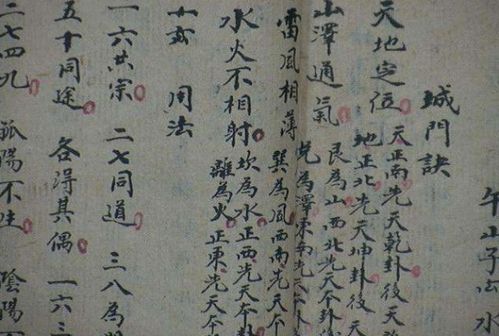 午山子水
城門訣
天地定位 天正南先天乾卦後天
地正北先天坤卦後天
山澤通氣 艮為山西北先天本卦
兌為澤東南先天本卦
雷風相薄
巽為風西南先天本
水火不相射 坎為水正西先天本卦
離為火正東先天本
玄 用法
一六共宗 二七同道 三八為
五十同途 各得其偶 一六三
二七四九 孤陽不生 陰陽